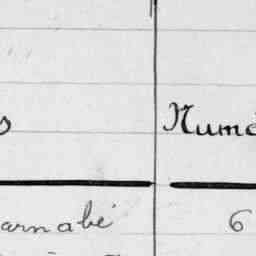 s Numé
arnabé 6